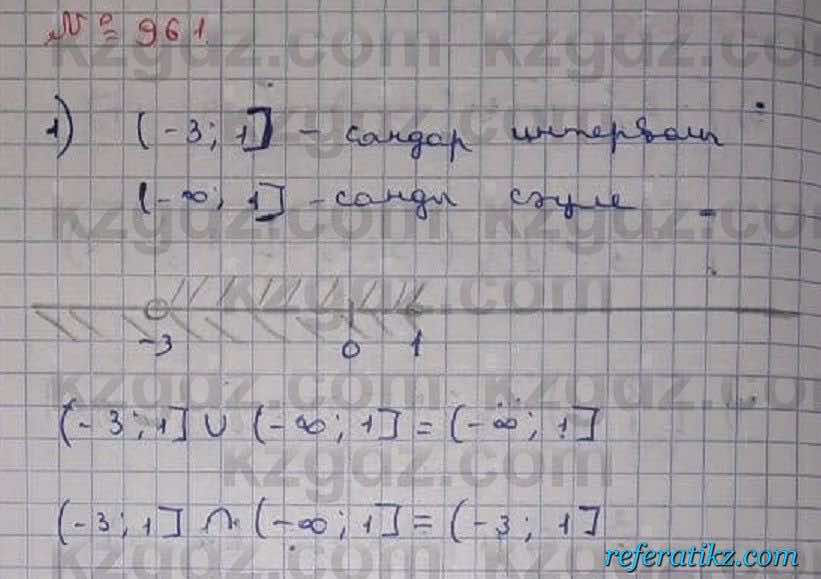 № 961
1) (-3; 1] - сандар интервалы
(-∞; 1] - санды сәуле
-3 0 1
(-3; 1] ∪ (-∞; 1] = (-∞; 1]
(-3; 1] ∩ (-∞; 1] = (-3; 1]
kzgdz.com
referatikz.com